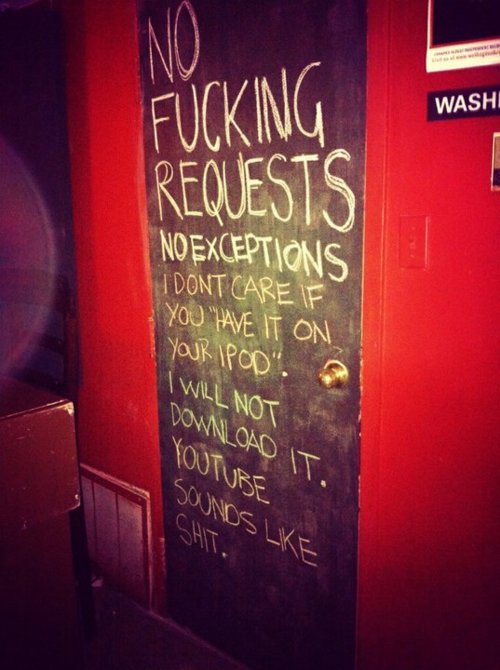 NO
FUCKING
REQUESTS
NO EXCEPTIONS
I DONT CARE IF
YOU "HAVE IT ON
YOUR IPOD".
I WILL NOT
DOWNLOAD IT.
YOUTUBE
SOUNDS LIKE
SHIT.
WASHI